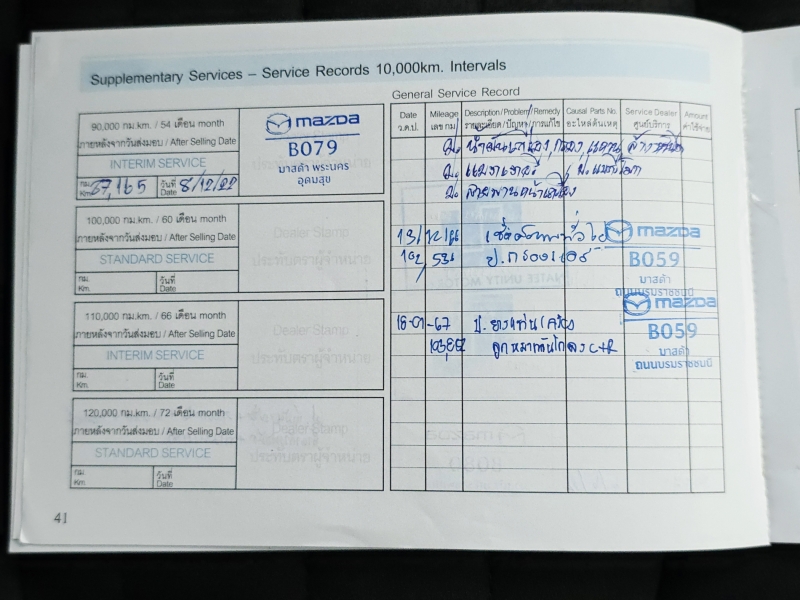 Supplementary Services – Service Records 10,000km. Intervals
90,000 กม.km. / 54 เดือน month
ภายหลังจากวันส่งมอบ / After Selling Date
INTERIM SERVICE
กม. Km. 87,165 วันที่ Date 8/12/22
mazda
B079
มาสด้า พระนคร
อุดมสุข
100,000 กม.km. / 60 เดือน month
ภายหลังจากวันส่งมอบ / After Selling Date
STANDARD SERVICE
กม. Km. วันที่ Date
Dealer Stamp
ประทับตราผู้จำหน่าย
110,000 กม.km. / 66 เดือน month
ภายหลังจากวันส่งมอบ / After Selling Date
INTERIM SERVICE
กม. Km. วันที่ Date
Dealer Stamp
ประทับตราผู้จำหน่าย
120,000 กม.km. / 72 เดือน month
ภายหลังจากวันส่งมอบ / After Selling Date
STANDARD SERVICE
กม. Km. วันที่ Date
Dealer Stamp
ประทับตราผู้จำหน่าย
41
General Service Record
Date Mileage Description/Problem/Remedy Causal Parts No. Service Dealer Amount
ว.ด.ป. เลข กม. รายละเอียด/ปัญหา/การแก้ไข อะไหล่ต้นเหตุ ศูนย์บริการ ค่าใช้จ่าย
ป. แบตเตอรี่
ป. สายพานหน้าเครื่อง
mazda
B059
มาสด้า
ถนนบรมราชชนนี
ป. กรองแอร์
16-01-67
mazda
B059
มาสด้า
ถนนบรมราชชนนี